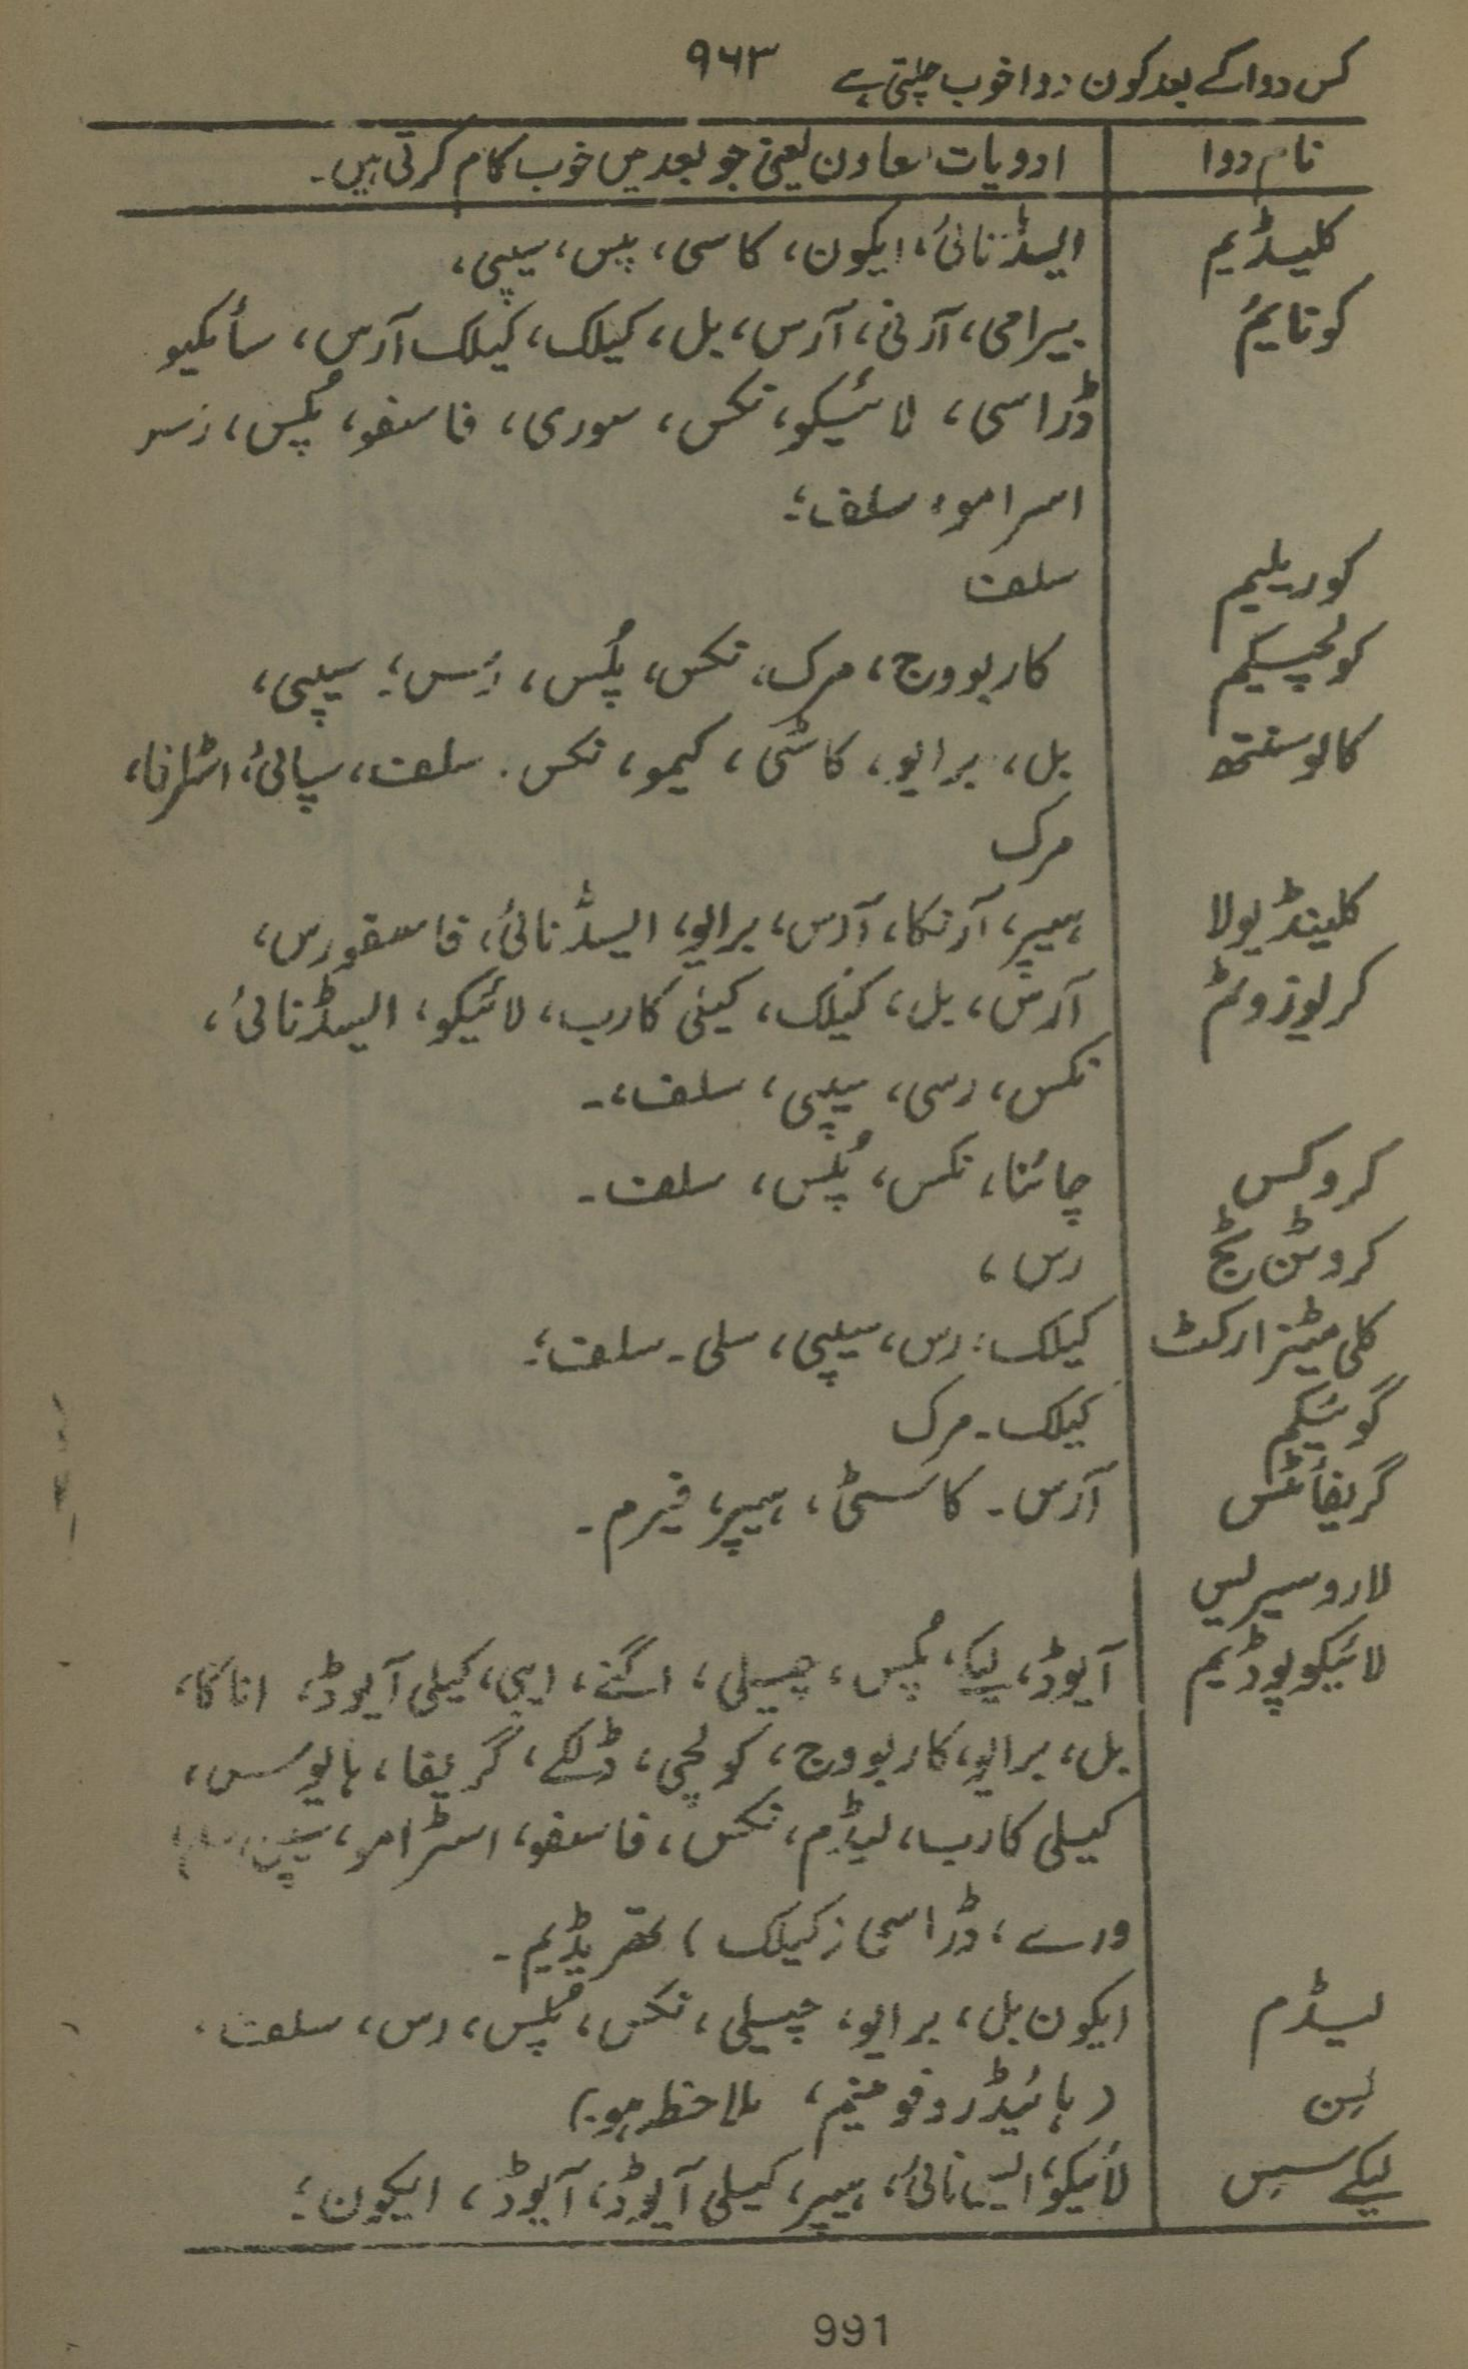 کس دوا کے بعد کون دوا خوب چلتی ہے ۹۶۳
نام دوا ادویات معاون یعنی جو بعد میں خوب کام کرتی ہیں۔
کلیڈیم ایسڈنائی، ایکون، کاسی، پپس، سیپی،
کونایم بیرامی، آرنی، آرس، بل، کیلک، کیلک آرس، سائکیو
ڈراسی، لائیکو، نکس، سوری، فاسفو، پلس، رسر
اسرامو، سلف،
کوریلیم سلف
کولچیکیم کاربووج، مرک، نکس، پلس، رس، سیپی،
کالوسنتھ بل، برایو، کاسٹی، کیمو، نکس۔ سلف، سپائی، اسٹرنا،
مرک
کلینڈیولا ہیپر، آرنکا، آرس، برایو، ایسڈنائی، فاسفورس،
کریوزوٹم آرس، بل، کیلک، کیلی کارب، لائیکو، ایسڈنائی،
نکس، رسی، سیپی، سلف،۔
کروکس چائنا، نکس، پلس، سلف۔
کروٹن ٹگ رس،
کلی میٹز ارکٹ کیلک، رس، سیپی، سلی۔ سلف،
گوئیکم کیلک۔ مرک
گریفائٹس آرس۔ کاسٹی، ہیپر، فیرم۔
لاروسیرلیس
لائیکوپوڈیم آیوڈ، لیکے، پلس، چیلی، اگنے، اپی، کیلی آیوڈ، اناکا،
بل، برایو، کاربووج، کولچی، ڈلکے، گریفا، ہایوسس،
کیلی کارب، لیڈم، نکس، فاسفو، اسٹرامو، سیپی،
ورے، ڈراسی کیلک، تھریڈیم۔
لیڈم ایکون بل، برایو، چیلی، نکس، پلس، رس، سلف،
لسن (ہائیڈروفوبینم، ملاحظہ ہو۔)
لیکے سس لائیکو، ایسانائی، ہیپر، کیلی آیوڈ، آیوڈ، ایکون،
991